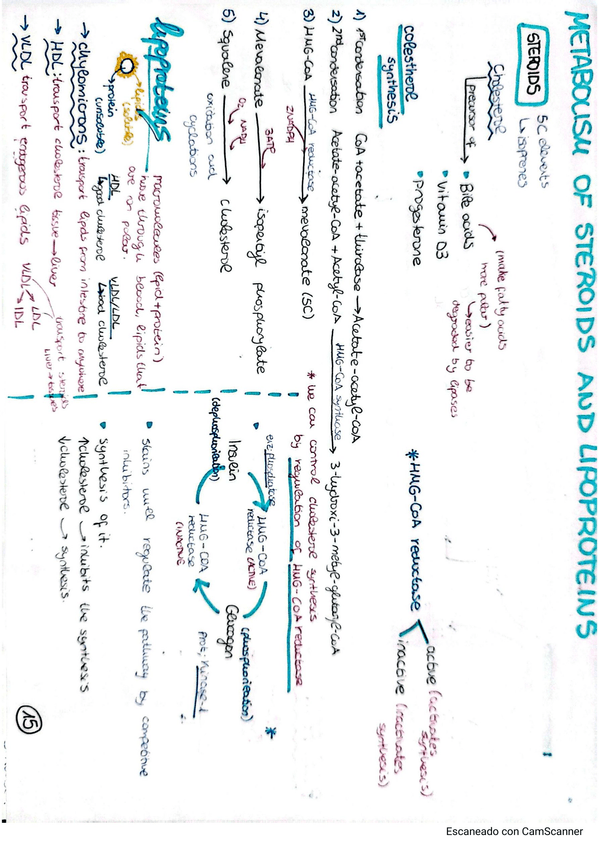 METABOLISM OF STEROIDS AND LIPOPROTEINS
STEROIDS
5C elements
↳ isoprenes
Cholesterol
precursor of → • Bile acids
• Vitamin D3
• Progesterone
(make fatty acids
more polar)
↳ easier to be
degraded by lipases
* HMG-CoA reductase
active (activates
synthesis)
inactive (inactivates
synthesis)
colestherol
synthesis
1) 1st condensation CoA + acetate + thiolase → Acetate-acetyl-CoA
2) 2nd condensation Acetate-acetyl-CoA + Acetyl-CoA HMG-CoA synthase → 3-hydroxi-3-metyl-glutaryl-CoA
3) HMG-CoA HMG-CoA reductase → mevalonate (5C)
2NADPH
* We can control cholesterol synthesis
by regulation of HMG-CoA reductase
4) Mevalonate → isopentyl phosphorylate
3ATP
5) Squalene → cholesterol
O2 NADPH
oxidation and
cyclations
*
HMG-CoA
reductase (ACTIVE)
Insulin
(dephosphorilation)
Glucagon
(phosphorilation)
prot; kinases
HMG-CoA
reductase
(INACTIVE)
lipoproteins
macromolecules (lipid + protein)
move through blood, lipids that
are not polar.
→ lipids
(soluble)
→ protein
(unsoluble)
HDL
↳ good cholesterol
VLDL/LDL
↳ bad cholesterol
→ chylomicrons: transport lipids from intestine to anywhere
→ HDL: transport cholesterol tissue → liver
→ VLDL transport endogenous lipids
VLDL
LDL
IDL
transport
liver → tissues
• Statins will regulate the pathway by competitive
inhibitors.
• Synthesis of it.
↑ cholesterol → inhibits the synthesis
↓ cholesterol → synthesis
15
Escaneado con CamScanner